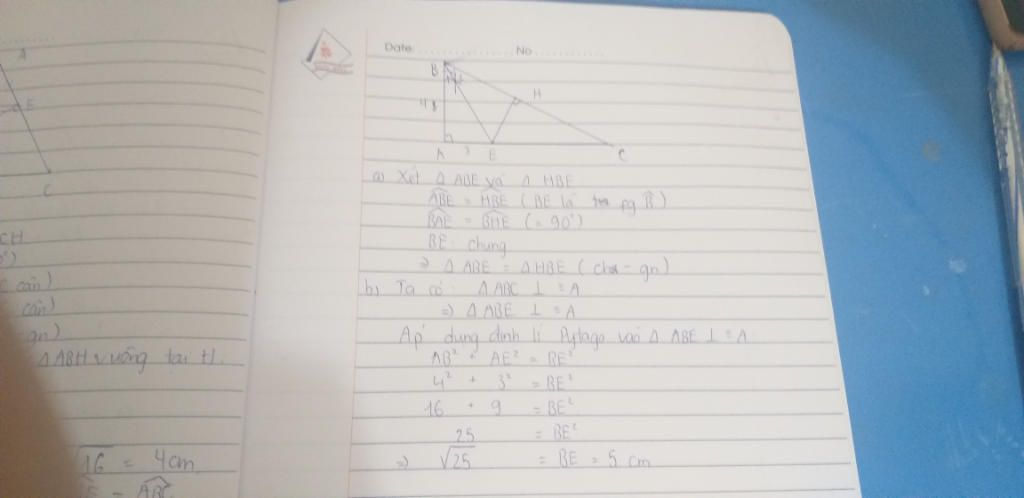 A
E
C
CH
0°)
C cân)
cân)
gn)
Δ ABH vuông tại H.
√16 = 4cm
= ABC
Date: No
B
H
4
A 3 E C
a) Xét Δ ABE và Δ HBE
ABE = HBE (BE là pg B)
BAE = BHE (= 90°)
BE chung
=> Δ ABE = Δ HBE (ch - gn)
b) Ta có: Δ ABC ⊥ = A
=> Δ ABE ⊥ = A
Áp dụng định lí Pytago vào Δ ABE ⊥ = A
AB² + AE² = BE²
4² + 3² = BE²
16 + 9 = BE²
25 = BE²
=> √25 = BE = 5 cm